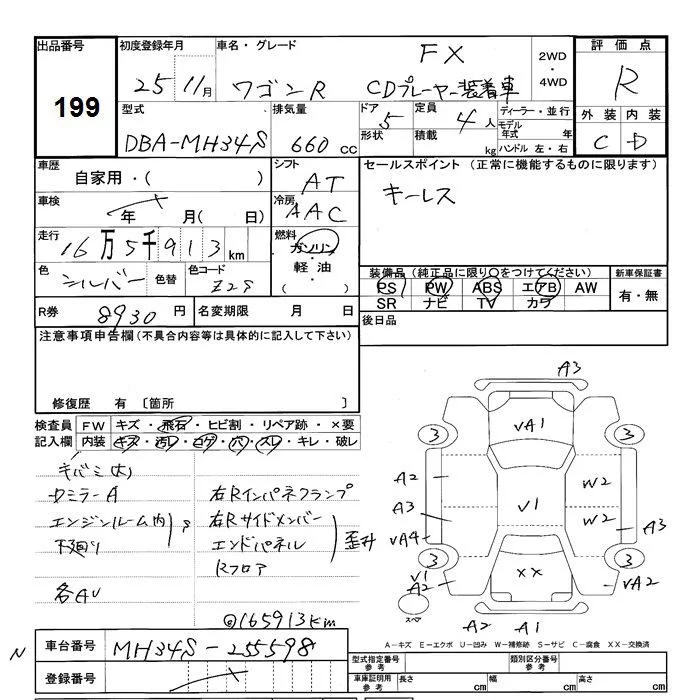 出品番号 初度登録年月 車名・グレード 評価点
199
25 11月 ワゴンR FX CDプレーヤー装着車 2WD・4WD R
型式 排気量 ドア 定員 ディーラー・並行 外装 内装
DBA-MH34S 660cc 5 4人 モデル年式 年 C D
形状 積載 kg ハンドル 左・右
車歴 シフト セールスポイント (正常に機能するものに限ります)
自家用・( ) AT キーレス
車検 年 月( 日) 冷房 AAC
走行 16万5千913km 燃料 ガソリン・軽油・( )
色 シルバー 色替 色コード Z2S
装備品(純正品に限り○をつけてください) 新車保証書
PS PW ABS エアB AW 有・無
SR ナビ TV カワ
R券 8930円 名変期限 月 日 後日品
注意事項申告欄(不具合内容等は具体的に記入して下さい)
修復歴 有 〔箇所 〕
検査員 FW キズ・飛石・ヒビ割・リペア跡・×要
記入欄 内装 キズ・汚レ・コゲ・穴・スレ・キレ・破レ
キバミ(大)
ロミラーA 右Rインパネフランプ
エンジンルーム内 右Rサイドメンバー
下廻り S エンドパネル 歪ミ
Rフロア
各AU
@165913km
A3
3 VA1 3
A2 W2
A3 V1 W2
VA4 A3
3 XX 3
V1
A2 VA2
スペア A2 A1
A-キズ E-エクボ U-凹み W-補修跡 S-サビ C-腐食 XX-交換済
N 車台番号 MH34S-255598
登録番号
型式指定番号 参考 類別区分番号 参考
車庫証明用 参考 長さ cm 幅 cm 高さ cm